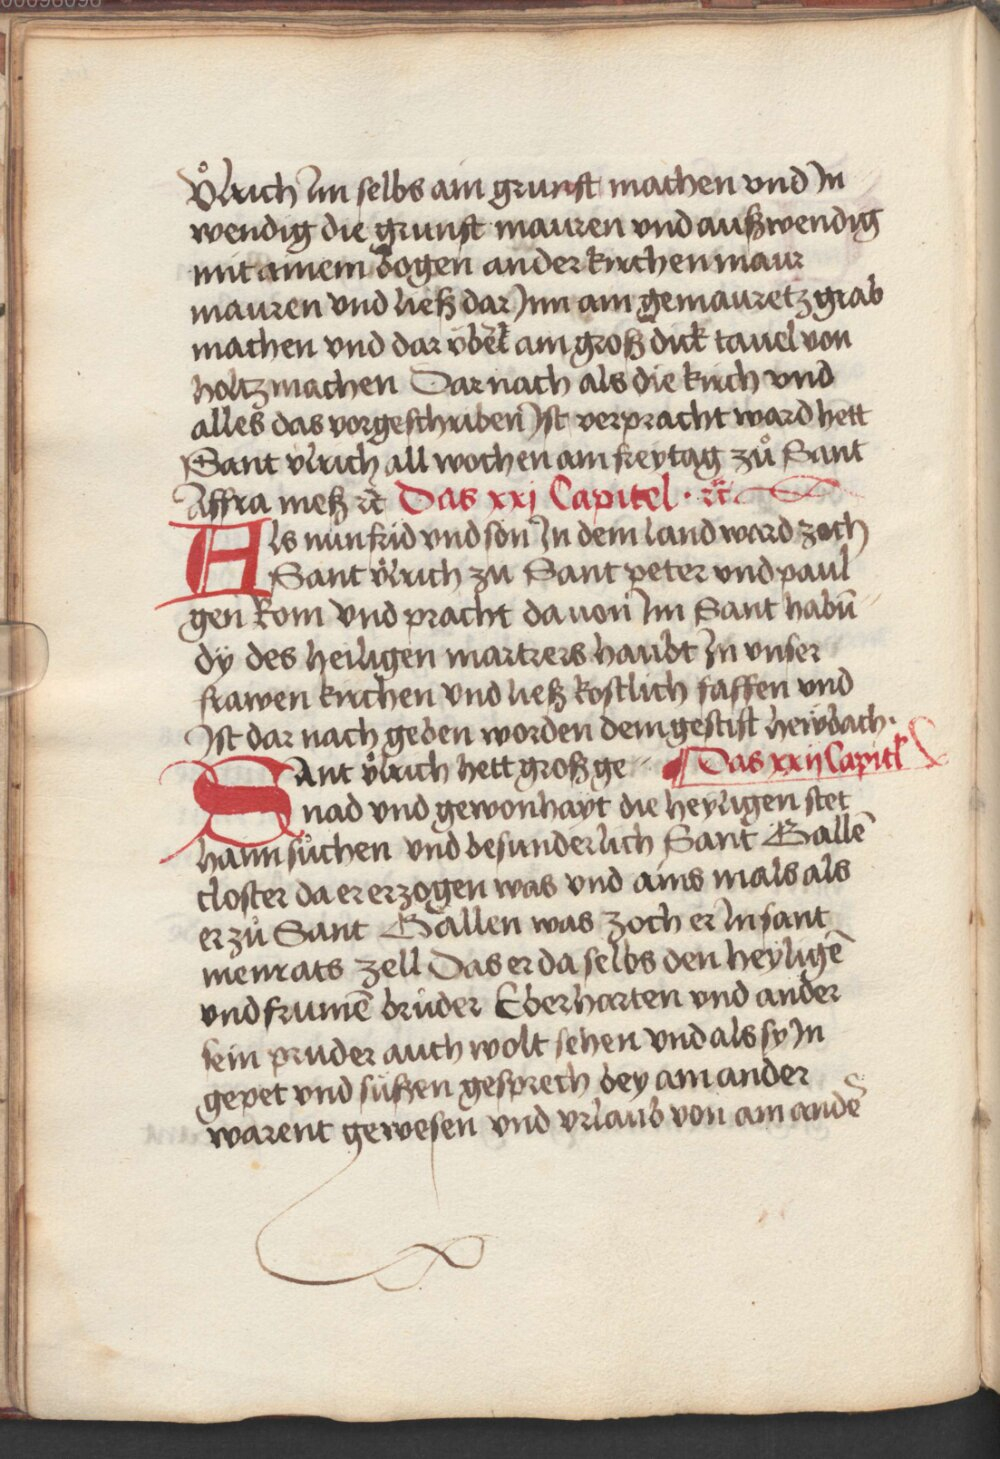 00096096
Vͦlrich Im selbs ain grunft machen vnd In
wendig die grunft mauren vnd außwendig
mit ainem bogen an der kirchen maur
mauren vnd ließ dar Inn ain gemauretz grab
machen vnd dar vber ain groß dick tauel von
holtz machen Dar nach als die kirch vnd
alles das vorgeschriben Ist verpracht ward hett
Sant vlrich all wochen am freytag zuͦ Sant
Affra meß ꝛc̄ Das xxj Capitel · ꝛc̄
Als nun frid vnd son In dem land ward zoch
Sant vͦlrich zu Sant peter vnd paul
gen Rom vnd pracht da von Im Sant habū
dÿ des heiligen martrers haubt In vnser
frawen kirchen vnd ließ kostlich faffen vnd
Ist dar nach geben worden dem gestift
Sant vͦlrich hett groß ge Das xxij Capitl
nad vnd gewonhayt die heyligen stet
haim suͦchen vnd besunderlich Sant Gallē
closter da er erzogen was vnd ains mals als
er zuͦ Sant Gallen was zoch er In sant
meinrats zell Das er da selbs den heyligē
vnd frumē bruder Eberharten vnd ander
sein pruder auch wolt sehen vnd als sy In
gepet vnd suͦßen gesprech bey ain ander
warent gewesen vnd vrlaub von ain andē